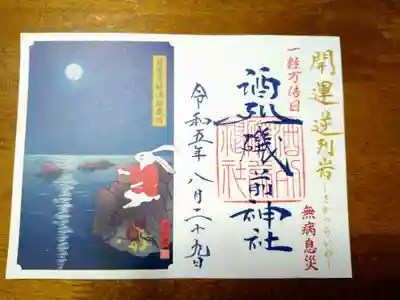 開運 逆列岩
－さかつらいわ－
無病息災
一粒万倍日
酒列磯前神社
令和五年 八月二十九日